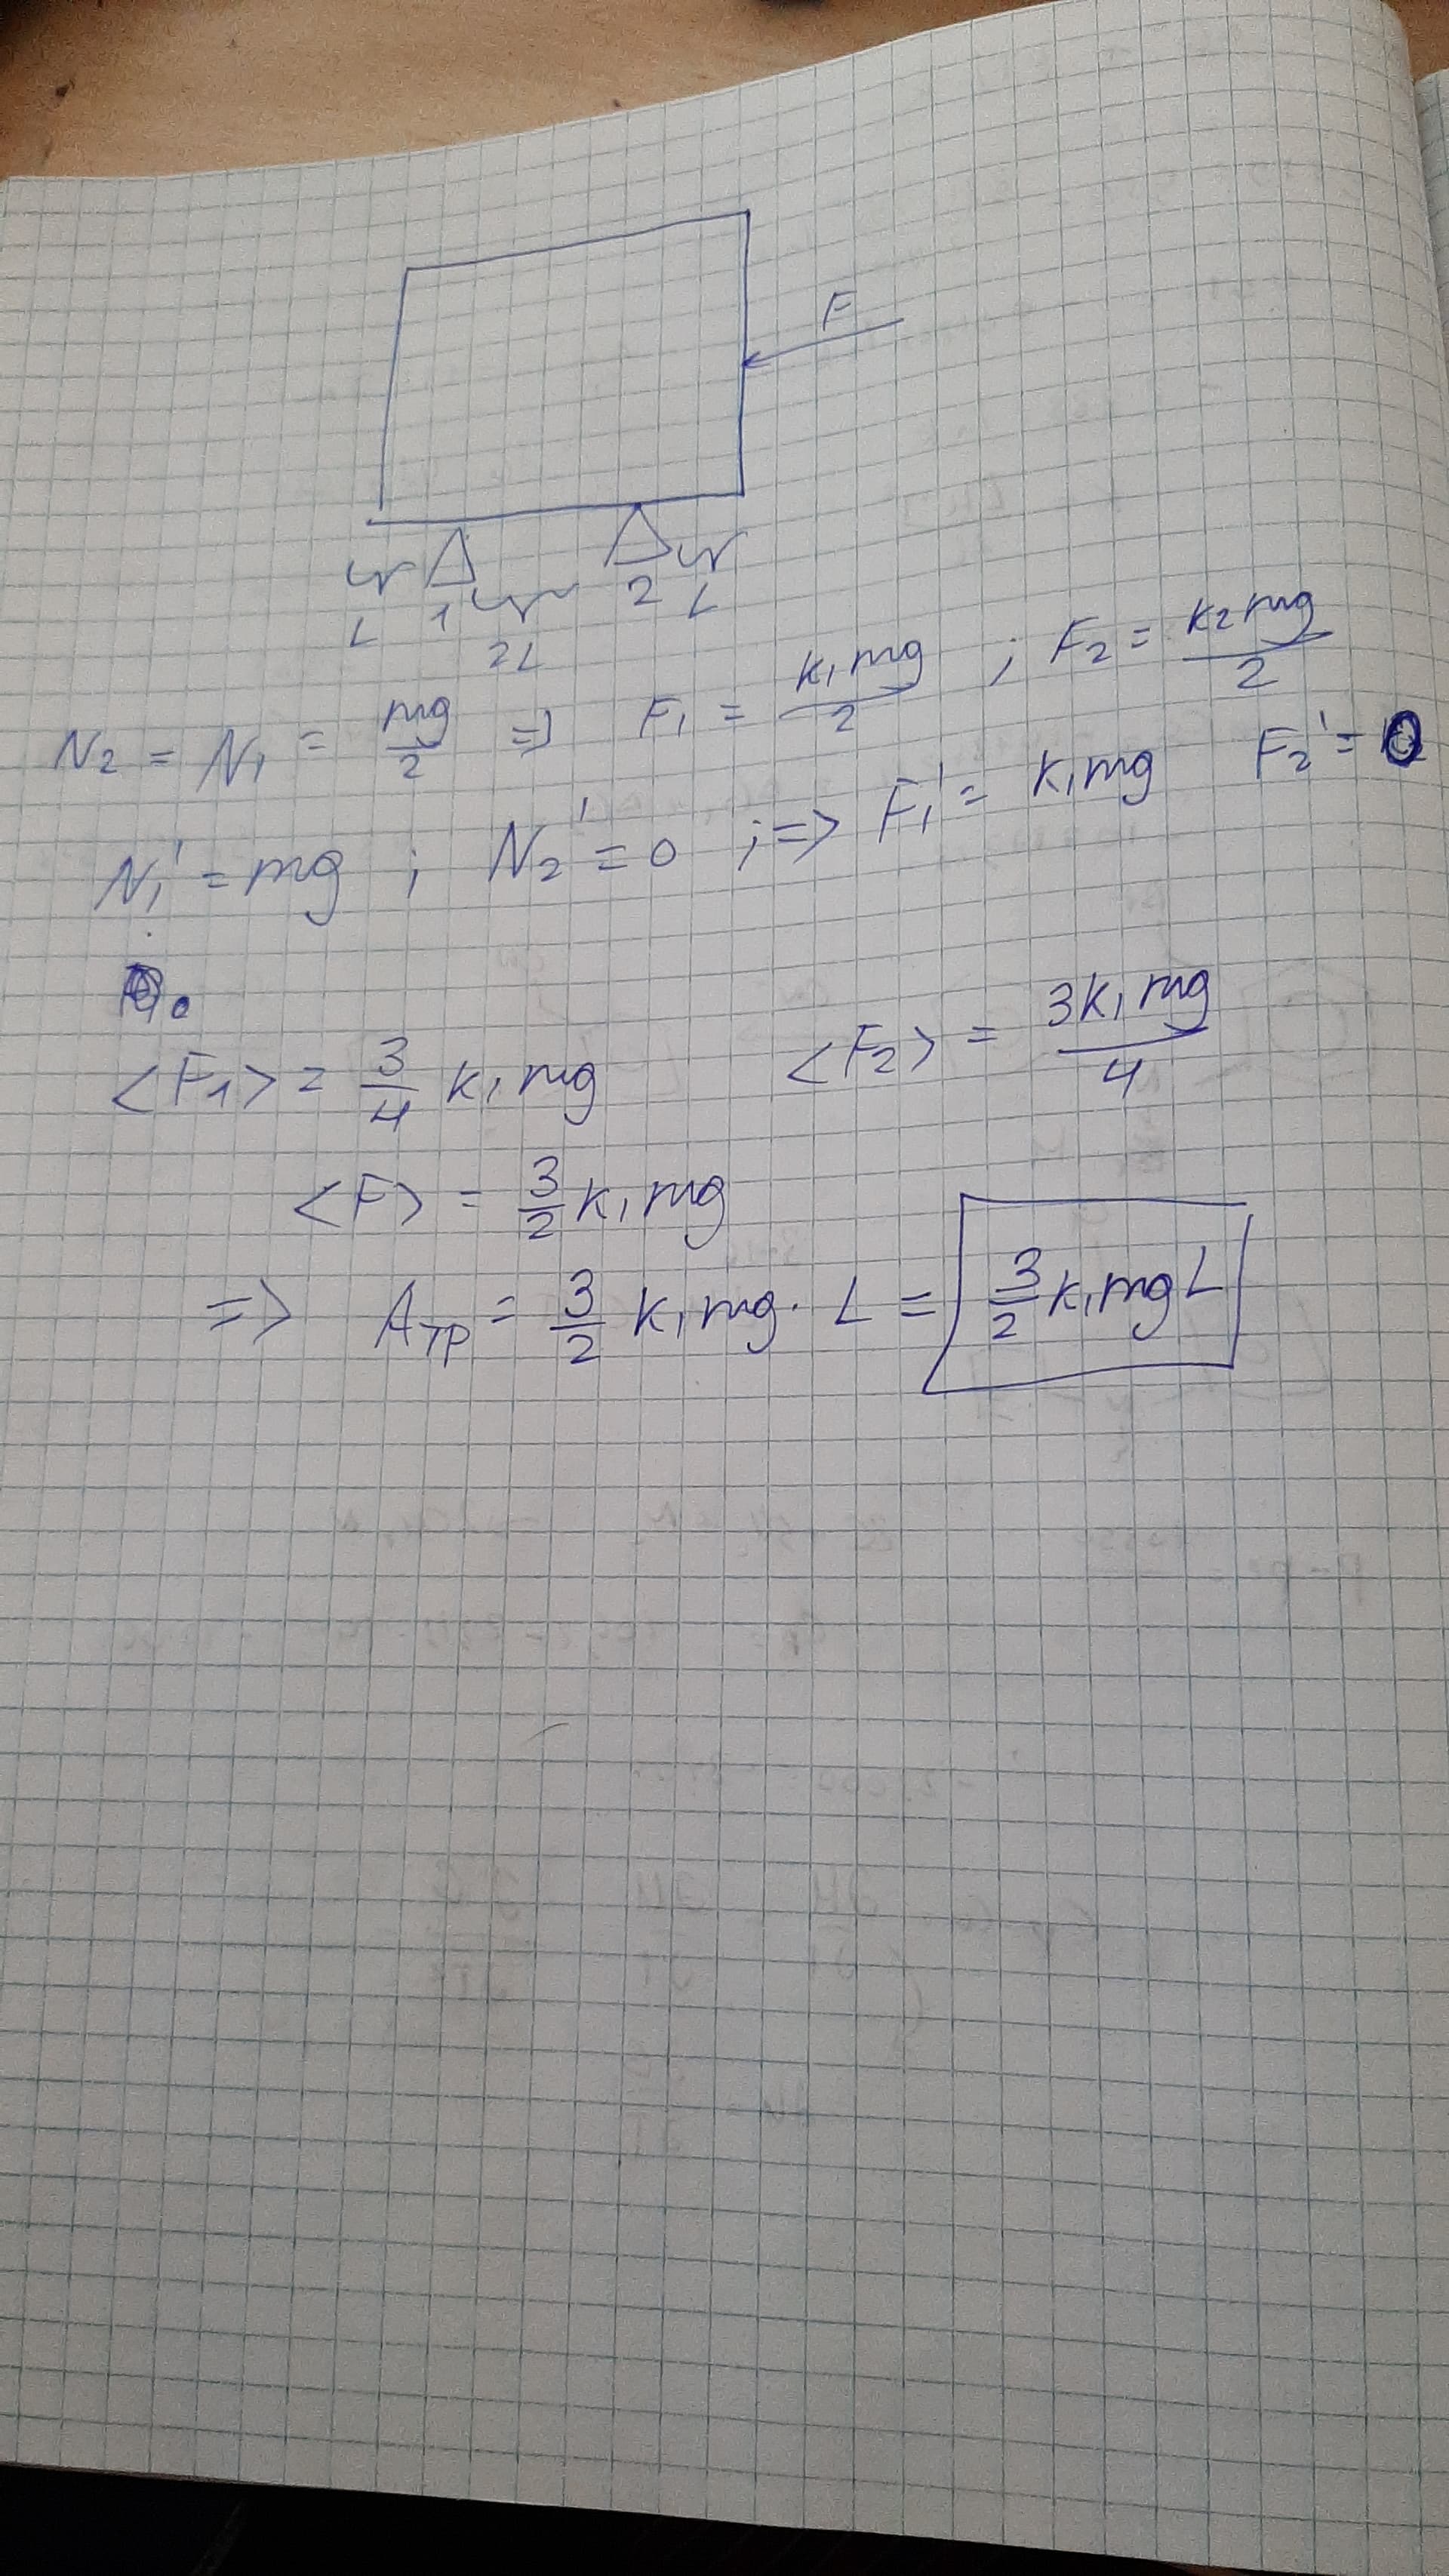 F
L 1 2L 2 L
N₂ = N₁ = mg/2 => F₁ = k₁mg/2 ; F₂ = k₂mg/2
N₁' = mg ; N₂' = 0 ; => F₁' = k₁mg F₂' = 0
<F₁> = 3/4 k₁mg <F₂> = 3k₁mg/4
<F> = 3/2 k₁mg
=> Aтр = 3/2 k₁mg · L = 3/2 k₁mgL